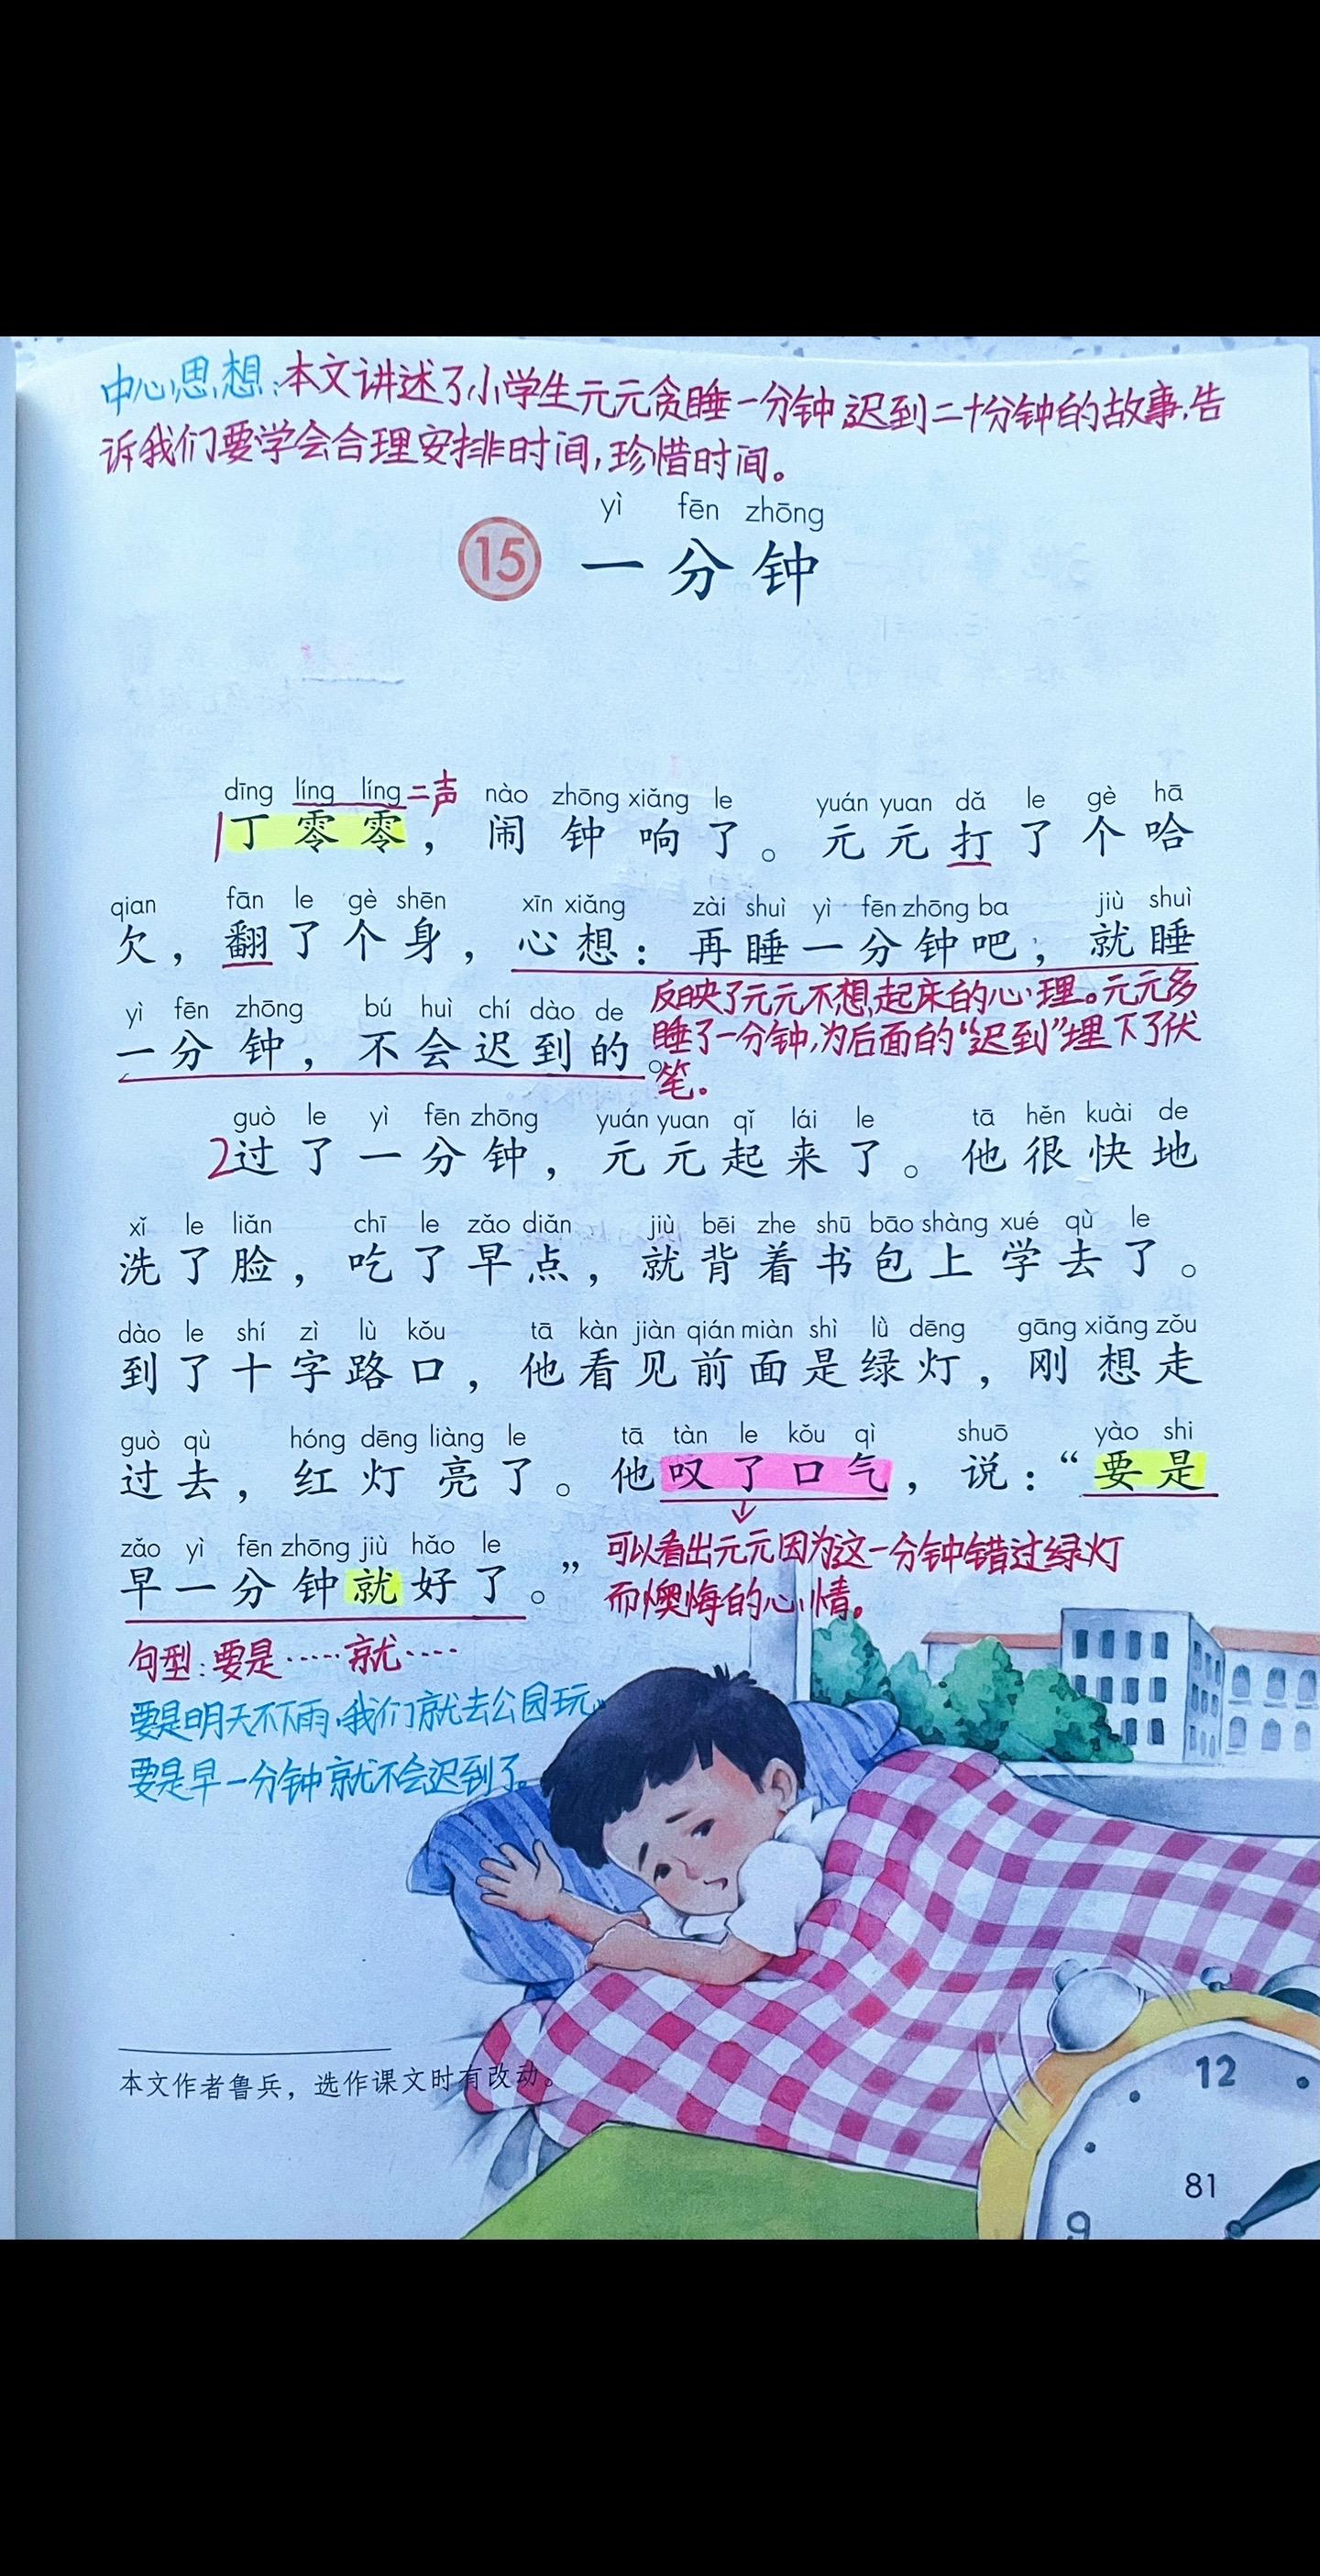 中心思想:本文讲述了小学生元元贪睡一分钟,迟到二十分钟的故事,告
诉我们要学会合理安排时间,珍惜时间。
yì fēn zhōng
15 一分钟
dīng líng líng 二声 nào zhōng xiǎng le yuán yuan dǎ le gè hā
1丁零零，闹钟响了。元元打了个哈
qian fān le gè shēn xīn xiǎng zài shuì yì fēn zhōng ba jiù shuì
欠，翻了个身，心想：再睡一分钟吧，就睡
yì fēn zhōng bú huì chí dào de
一分钟，不会迟到的。
反映了元元不想起床的心理。元元多
睡了一分钟,为后面的“迟到”埋下了伏
笔。
guò le yì fēn zhōng yuán yuan qǐ lái le tā hěn kuài de
2过了一分钟，元元起来了。他很快地
xǐ le liǎn chī le zǎo diǎn jiù bēi zhe shū bāo shàng xué qù le
洗了脸，吃了早点，就背着书包上学去了。
dào le shí zì lù kǒu tā kàn jiàn qián miàn shì lǜ dēng gāng xiǎng zǒu
到了十字路口，他看见前面是绿灯，刚想走
guò qù hóng dēng liàng le tā tàn le kǒu qì shuō yào shi
过去，红灯亮了。他叹了口气，说：“要是
zǎo yì fēn zhōng jiù hǎo le
早一分钟就好了。”
可以看出元元因为这一分钟错过绿灯
而懊悔的心情。
句型:要是……就……
要是明天不下雨,我们就去公园玩。
要是早一分钟就不会迟到了。
本文作者鲁兵，选作课文时有改动。
12
9
81